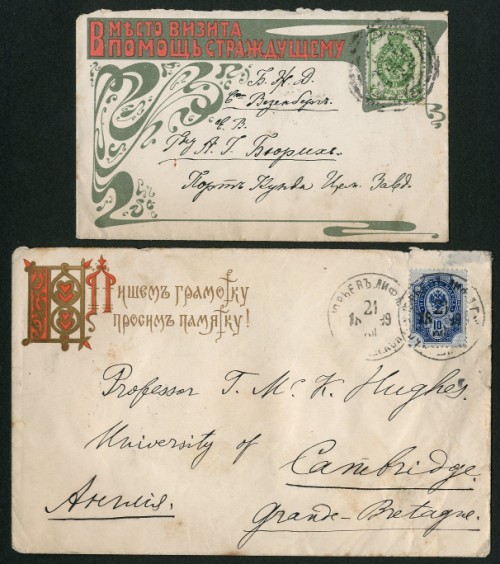 Вместо визита
Впомощь страждущему
Б. Ж. Д.
Ст. Везенбергъ.
Е. В.
А. Г. Бюрихъ.
Портъ Кунда Цем. Завд.
Пишемъ грамотку
просимъ памятку!
ЮРЬЕВЪ ЛИФЛ
21
10
Professor T. McK. Hughes.
University of
Cambridge.
Англія.
Grande-Bretagne.